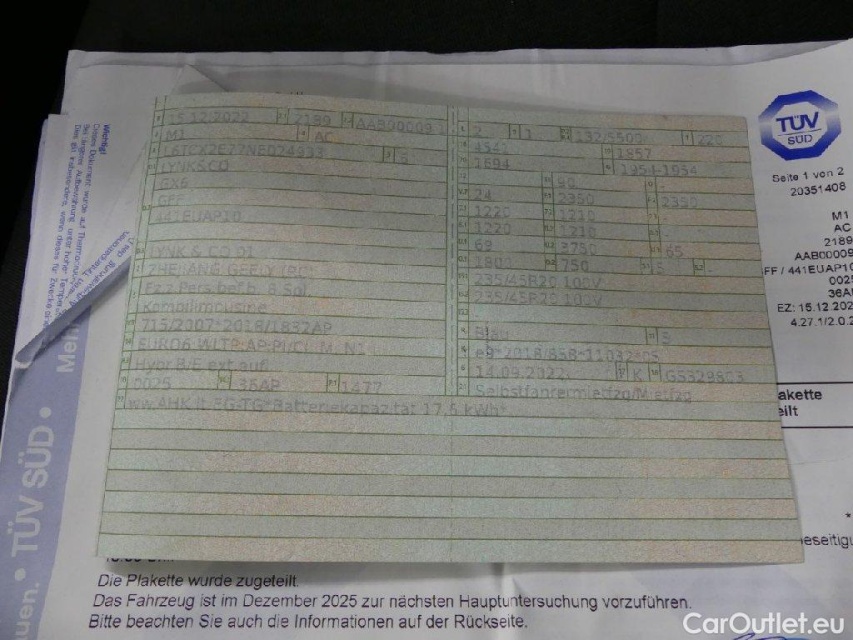 15.12.2022 2199 AAB00009
M1 AC
LYNK&CO
GX6
GFF
441EUAP10
LYNK & CO 01
ZHEJIANG GEELY (RC)
Fz.z.Pers.bef.b. 8 Spl
Kombilimousine
715/2007*2018/1832AP
EURO6 WLTP;AP;PI/CI, M, N1
Hybr.B/E ext.aufl.
0025 36AP 1477
ww.AHK lt.EG-TG*Batteriekapazität 17,6 kWh*
2 1 132/5500 220
4541 1857
1694 1954-1954
90
24 2350 2350
1220 1210
1220 1210
69 3750 65
180 750 5
235/45R20 100V
235/45R20 100V
Blau 5
e9*2018/858*11032*05
14.09.2022 K GS529803
Selbstfahrermietfzg/Mietfzg
TÜV
SÜD
Seite 1 von 2
20351408
M1
AC
2189
AAB00009
FF / 441EUAP10
0025
36A
EZ: 15.12.202
4.27.1/2.0.2
akette
eilt
eseitigu
Wichtig!
TÜV SÜD
uen.
Die Plakette wurde zugeteilt.
Das Fahrzeug ist im Dezember 2025 zur nächsten Hauptuntersuchung vorzuführen.
Bitte beachten Sie auch die Informationen auf der Rückseite.
CarOutlet.eu